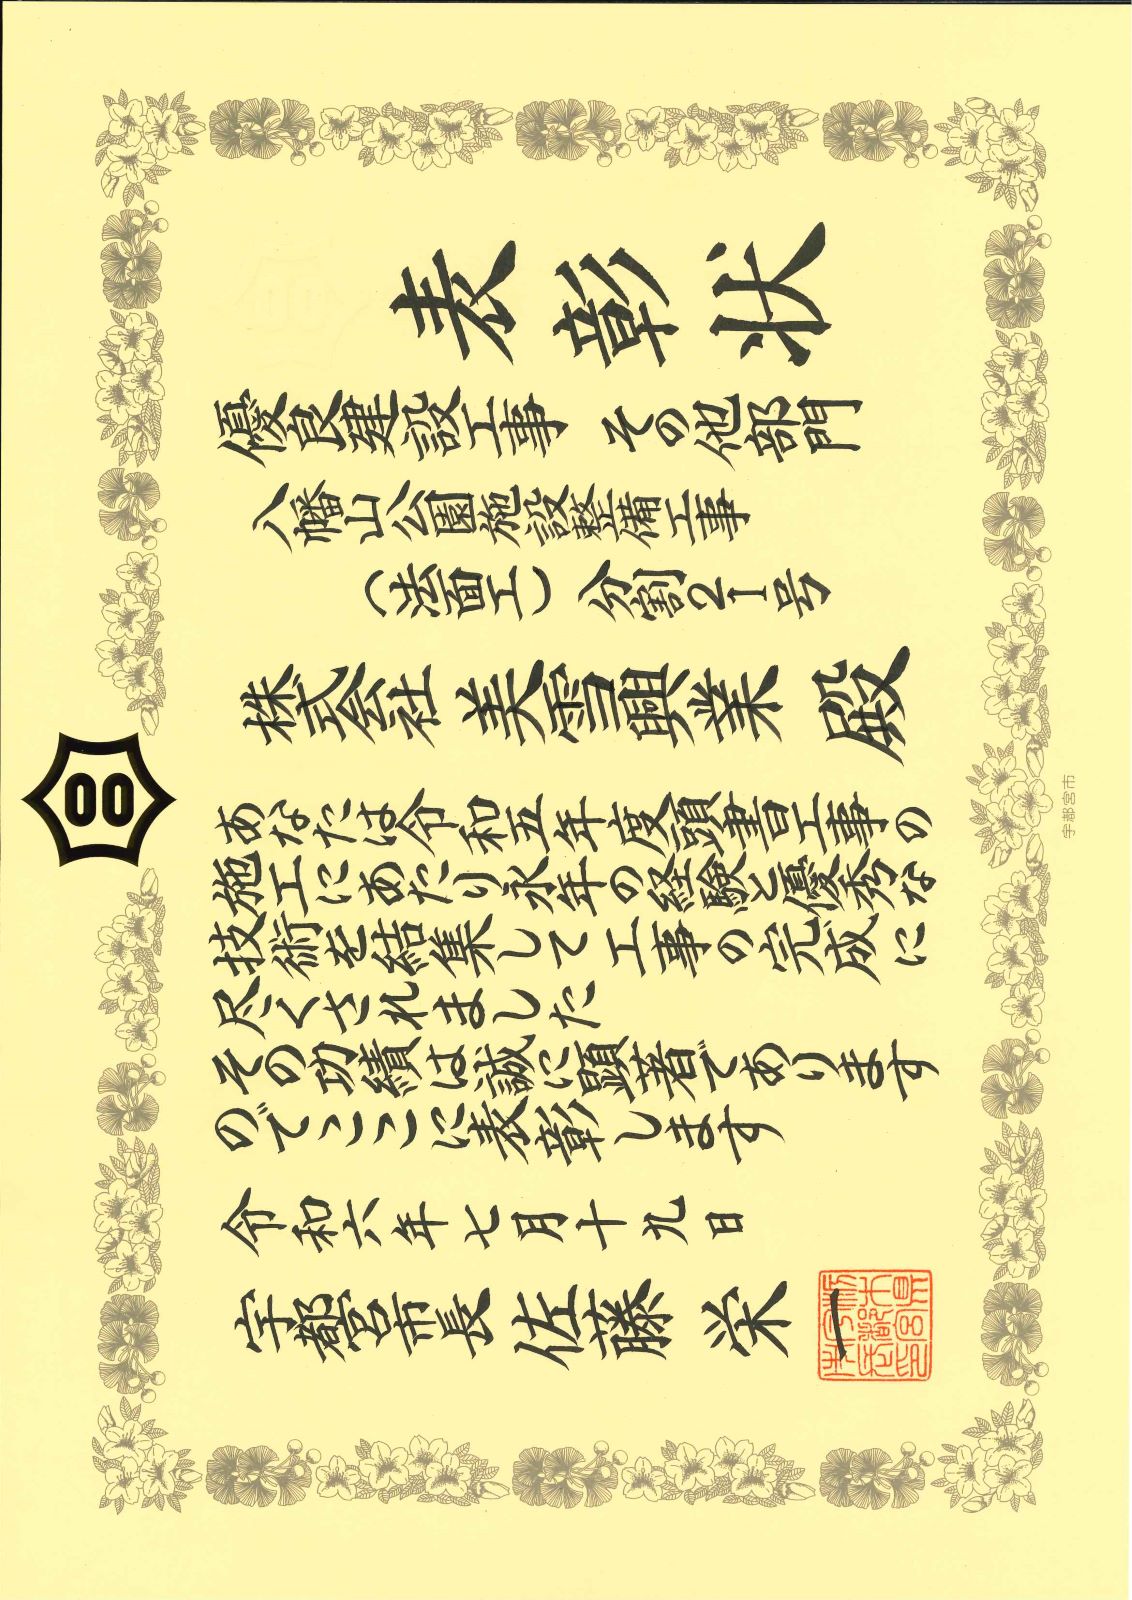 表彰状
優良建設工事 その他部門
八幡山公園施設整備工事
(法面工)分割2-1号
株式会社 美雪興業 殿
あなたは令和五年度頭書工事の
施工にあたり永年の経験と優秀な
技術を結集して工事の完成に
尽くされました
その功績は誠に顕著であります
のでここに表彰します
令和六年七月十九日
宇都宮市長 佐藤 栄一
宇都宮市